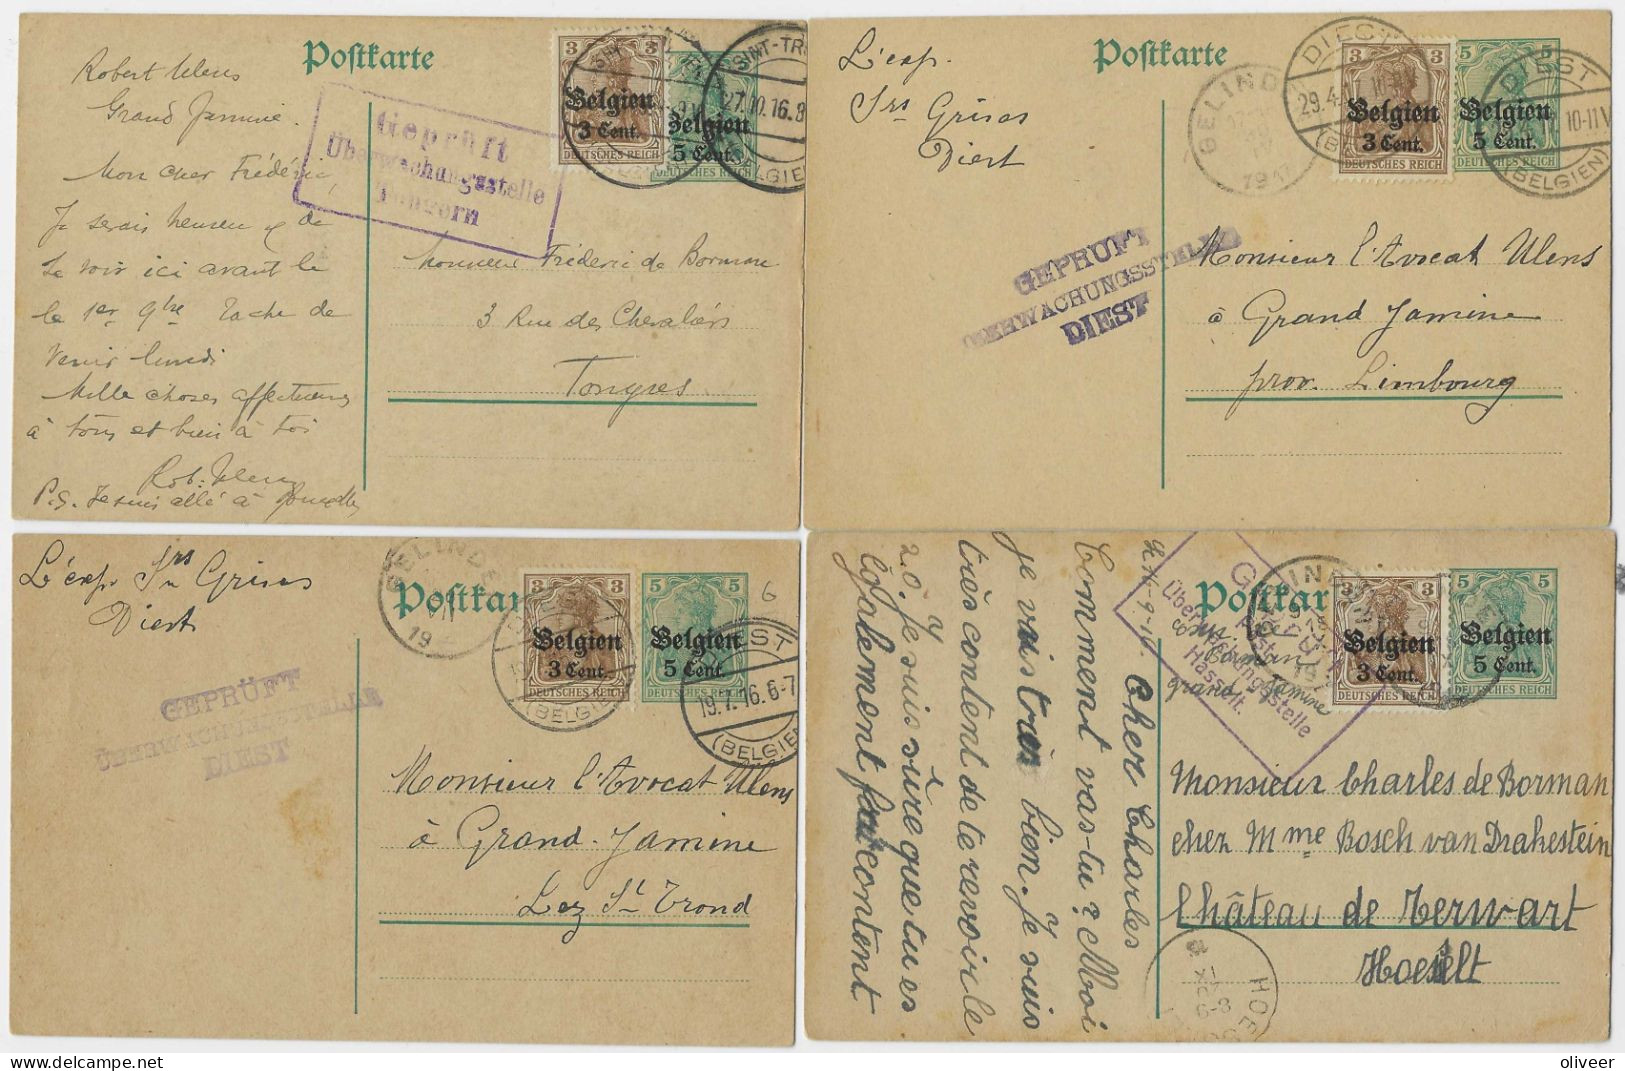 Robert Ulens
Grand Jamine.
Mon cher Frédéric,
Je serais heureux de
te voir ici avant le
le 1er 9bre Tache de
venir lundi
Mille choses affectueuses
à tous et bien à toi
Rob. Ulens
P.S. Je suis allé à
Postkarte
3 3
Belgien
3 Cent.
DEUTSCHES REICH
Belgien
5 Cent.
DEUTSCHES REICH
SINT-TR
27.10.16.8
BELGIEN
Geprüft
Überwachungsstelle
Tongern
Monsieur Fréderic de Borman
3 Rue des Chevaliers
Tongres
L'exp.
Srs Grisas
Diest
Postkarte
GELIND
DIEST
29.4.17.10-11V
3 3
Belgien
3 Cent.
DEUTSCHES REICH
5 5
Belgien
5 Cent.
DEUTSCHES REICH
DIEST
10-11V
(BELGIEN)
GEPRÜFT
ÜBERWACHUNGSSTELLE
DIEST
Monsieur l'Avocat Ulens
à Grand Jamine
prov. Limbourg
L'exp. Srs Grisas
Diest
GELINDE
19
Postkar
3 3
Belgien
3 Cent.
DEUTSCHES REICH
5 5
Belgien
5 Cent.
DEUTSCHES REICH
6
DIEST
(BELGIEN)
DIEST
19.7.16.6-7
(BELGIEN
GEPRÜFT
ÜBERWACHUNGSSTELLE
DIEST
Monsieur l'Avocat Ulens
à Grand-Jamine
Lez St Trond
Cher Charles
Comment vas-tu? Moi
je vais très bien. Je suis
très content de te revoir le
20. Je suis sûre que tu es
également content
Postkar
Geprüft
Überwachungsstelle
Hasselt.
grand Jamine
GELINDE
3 3
Belgien
3 Cent.
DEUTSCHES REICH
5 5
Belgien
5 Cent.
DEUTSCHES REICH
Monsieur Charles de Borman
chez Mme Bosch van Drakestein
Château de Terwart
Hoeselt
HOE
oliveer